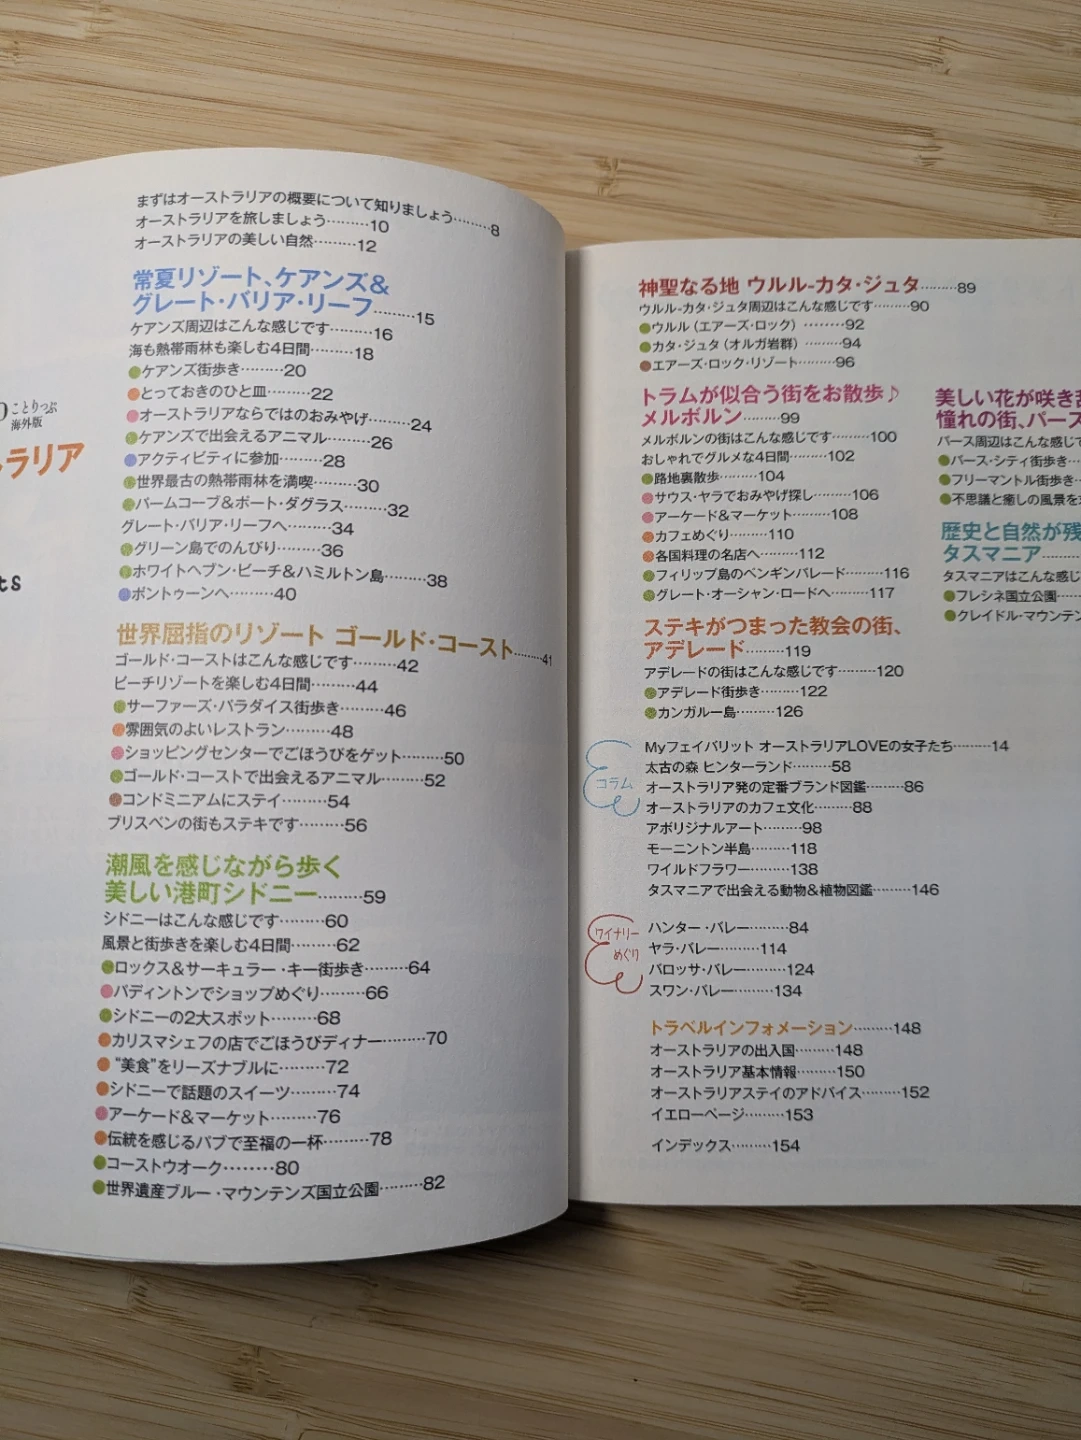 ことりっぷ
海外版
ラリア
ts
まずはオーストラリアの概要について知りましょう………8
オーストラリアを旅しましょう………10
オーストラリアの美しい自然………12
常夏リゾート、ケアンズ&
グレート・バリア・リーフ………15
ケアンズ周辺はこんな感じです………16
海も熱帯雨林も楽しむ4日間………18
ケアンズ街歩き………20
とっておきのひと皿………22
オーストラリアならではのおみやげ………24
ケアンズで出会えるアニマル………26
アクティビティに参加………28
世界最古の熱帯雨林を満喫………30
パームコーブ&ポート・ダグラス………32
グレート・バリア・リーフへ………34
グリーン島でのんびり………36
ホワイトヘブン・ビーチ&ハミルトン島………38
ポントゥーンへ………40
世界屈指のリゾート ゴールド・コースト………41
ゴールド・コーストはこんな感じです………42
ビーチリゾートを楽しむ4日間………44
サーファーズ・パラダイス街歩き………46
雰囲気のよいレストラン………48
ショッピングセンターでごほうびをゲット………50
ゴールド・コーストで出会えるアニマル………52
コンドミニアムにステイ………54
ブリスベンの街もステキです………56
潮風を感じながら歩く
美しい港町シドニー………59
シドニーはこんな感じです………60
風景と街歩きを楽しむ4日間………62
ロックス&サーキュラー・キー街歩き………64
パディントンでショップめぐり………66
シドニーの2大スポット………68
カリスマシェフの店でごほうびディナー………70
“美食”をリーズナブルに………72
シドニーで話題のスイーツ………74
アーケード&マーケット………76
伝統を感じるパブで至福の一杯………78
コーストウオーク………80
世界遺産ブルー・マウンテンズ国立公園………82
神聖なる地 ウルル-カタ・ジュタ………89
ウルル-カタ・ジュタ周辺はこんな感じです………90
ウルル（エアーズ・ロック）………92
カタ・ジュタ（オルガ岩群）………94
エアーズ・ロック・リゾート………96
トラムが似合う街をお散歩♪
メルボルン………99
メルボルンの街はこんな感じです………100
おしゃれでグルメな4日間………102
路地裏散歩………104
サウス・ヤラでおみやげ探し………106
アーケード&マーケット………108
カフェめぐり………110
各国料理の名店へ………112
フィリップ島のペンギンパレード………116
グレート・オーシャン・ロードへ………117
ステキがつまった教会の街、
アデレード………119
アデレードの街はこんな感じです………120
アデレード街歩き………122
カンガルー島………126
コラム
Myフェイバリット オーストラリアLOVEの女子たち………14
太古の森 ヒンターランド………58
オーストラリア発の定番ブランド図鑑………86
オーストラリアのカフェ文化………88
アボリジナルアート………98
モーニントン半島………118
ワイルドフラワー………138
タスマニアで出会える動物&植物図鑑………146
ワイナリー
めぐり
ハンター・バレー………84
ヤラ・バレー………114
バロッサ・バレー………124
スワン・バレー………134
トラベルインフォメーション………148
オーストラリアの出入国………148
オーストラリア基本情報………150
オーストラリアステイのアドバイス………152
イエローページ………153
インデックス………154
美しい花が咲き
憧れの街、パース
パース周辺はこんな感じで
パース・シティ街歩き
フリーマントル街歩き
不思議と癒しの風景を
歴史と自然が残
タスマニア
タスマニアはこんな感じ
フレシネ国立公園
クレイドル・マウンテン